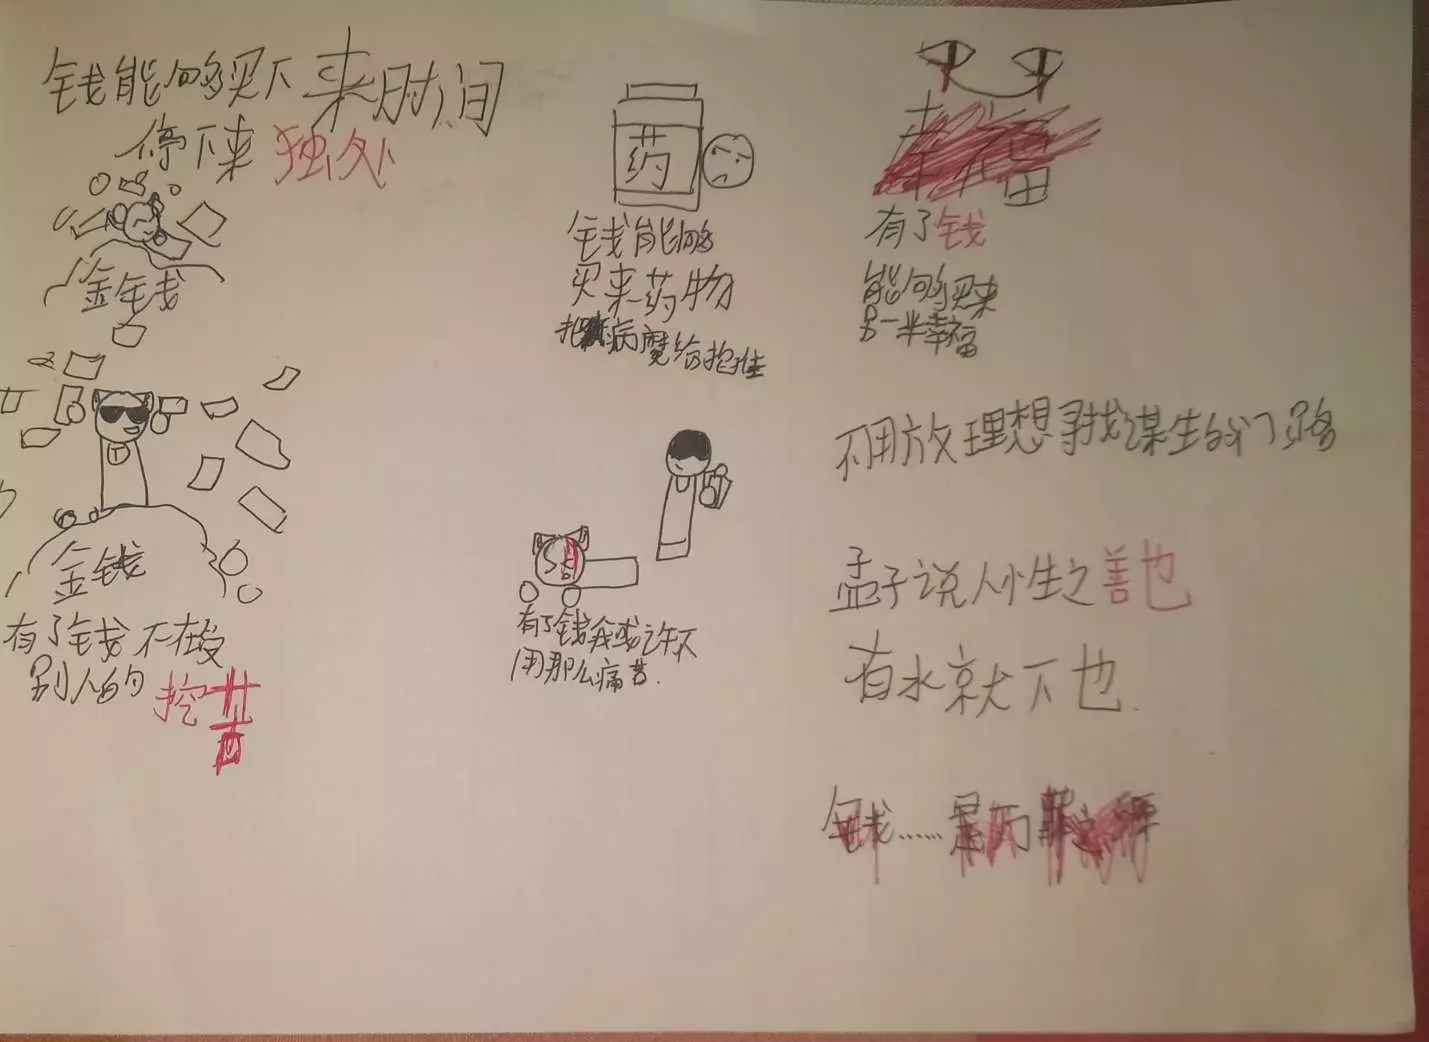 钱能够买下来时间
停下来 独处
金钱
金钱
有了钱不在受
别人的挖苦
药
钱能够
买来药物
把病魔给抱住
有了钱我或许不
用那么痛苦.
幸福
有了钱
能够买来
另一半幸福
不用放理想寻找谋生的门路
孟子说人性之善也
有水就下也.
钱……是万罪之源